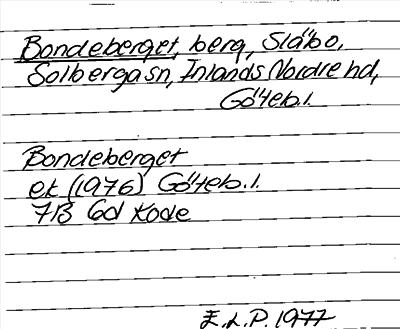 Bondeberget, berg, Slåbo,
Solberga sn, Inlands Nordre hd,
Göteb.l.
Bondeberget
ek (1976) Göteb.l.
7B 6d Kode
E.L.P. 1977